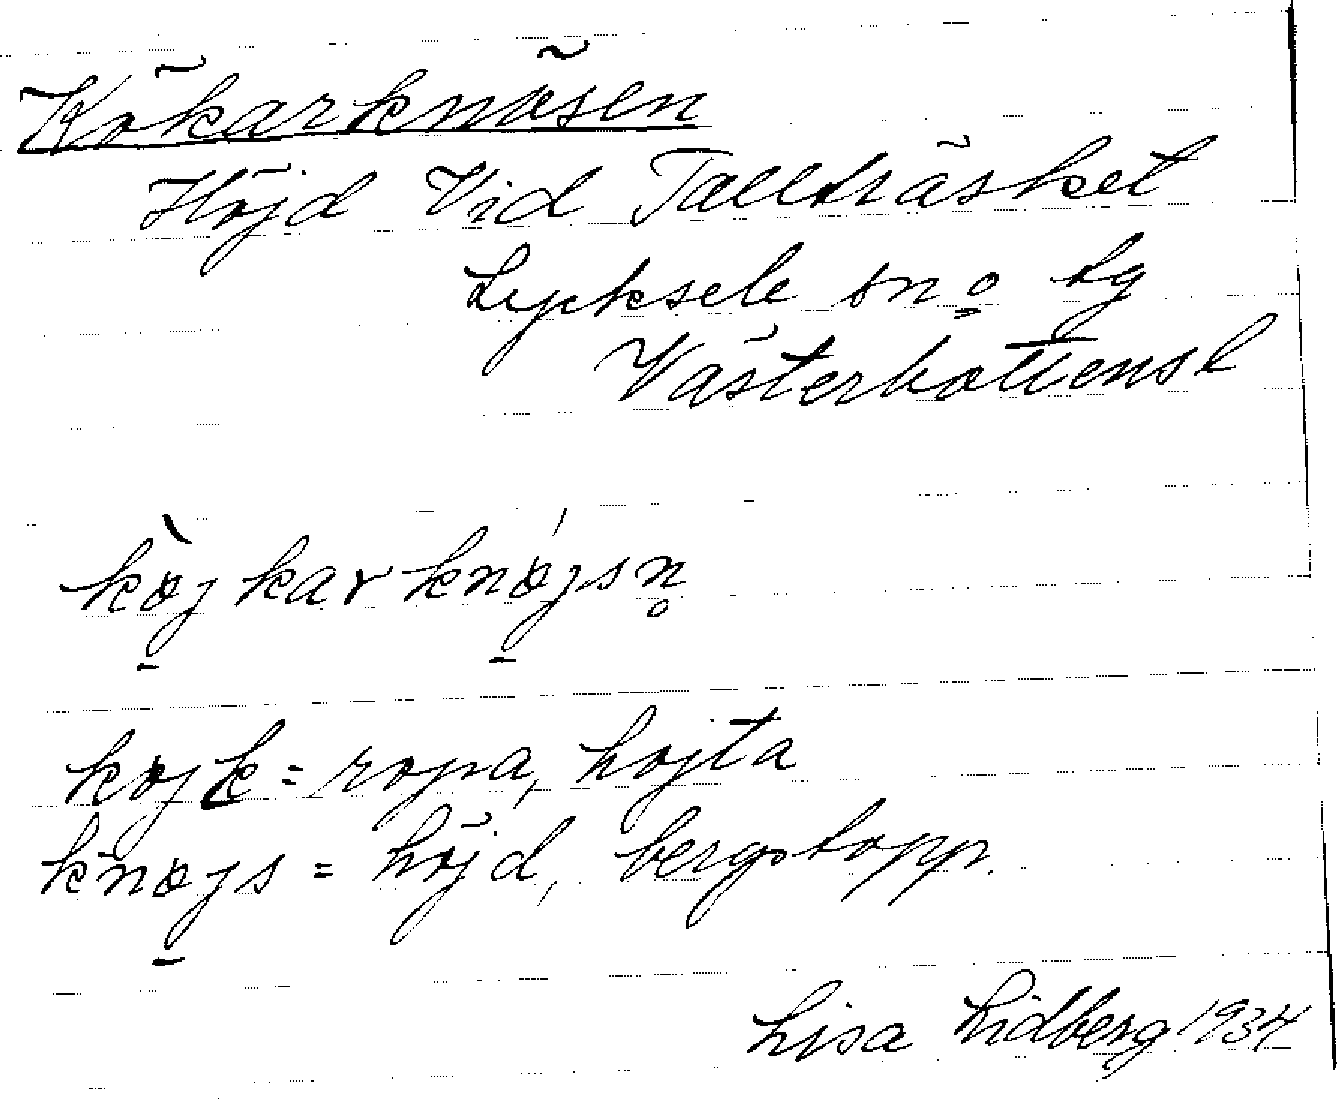 Kökarknösen
Höjd Vid Tallträsket
Lycksele sn o lg
Västerbottensl
kø̀jkarknǿjsn̥
køjk = ropa, hojta
knøjs = höjd, bergstopp.
Lisa Lidberg 1934